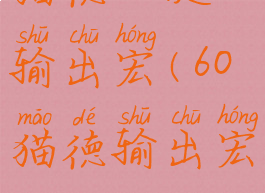 shū chū hóng
输出宏(60
māo dé shū chū hóng
猫德输出宏